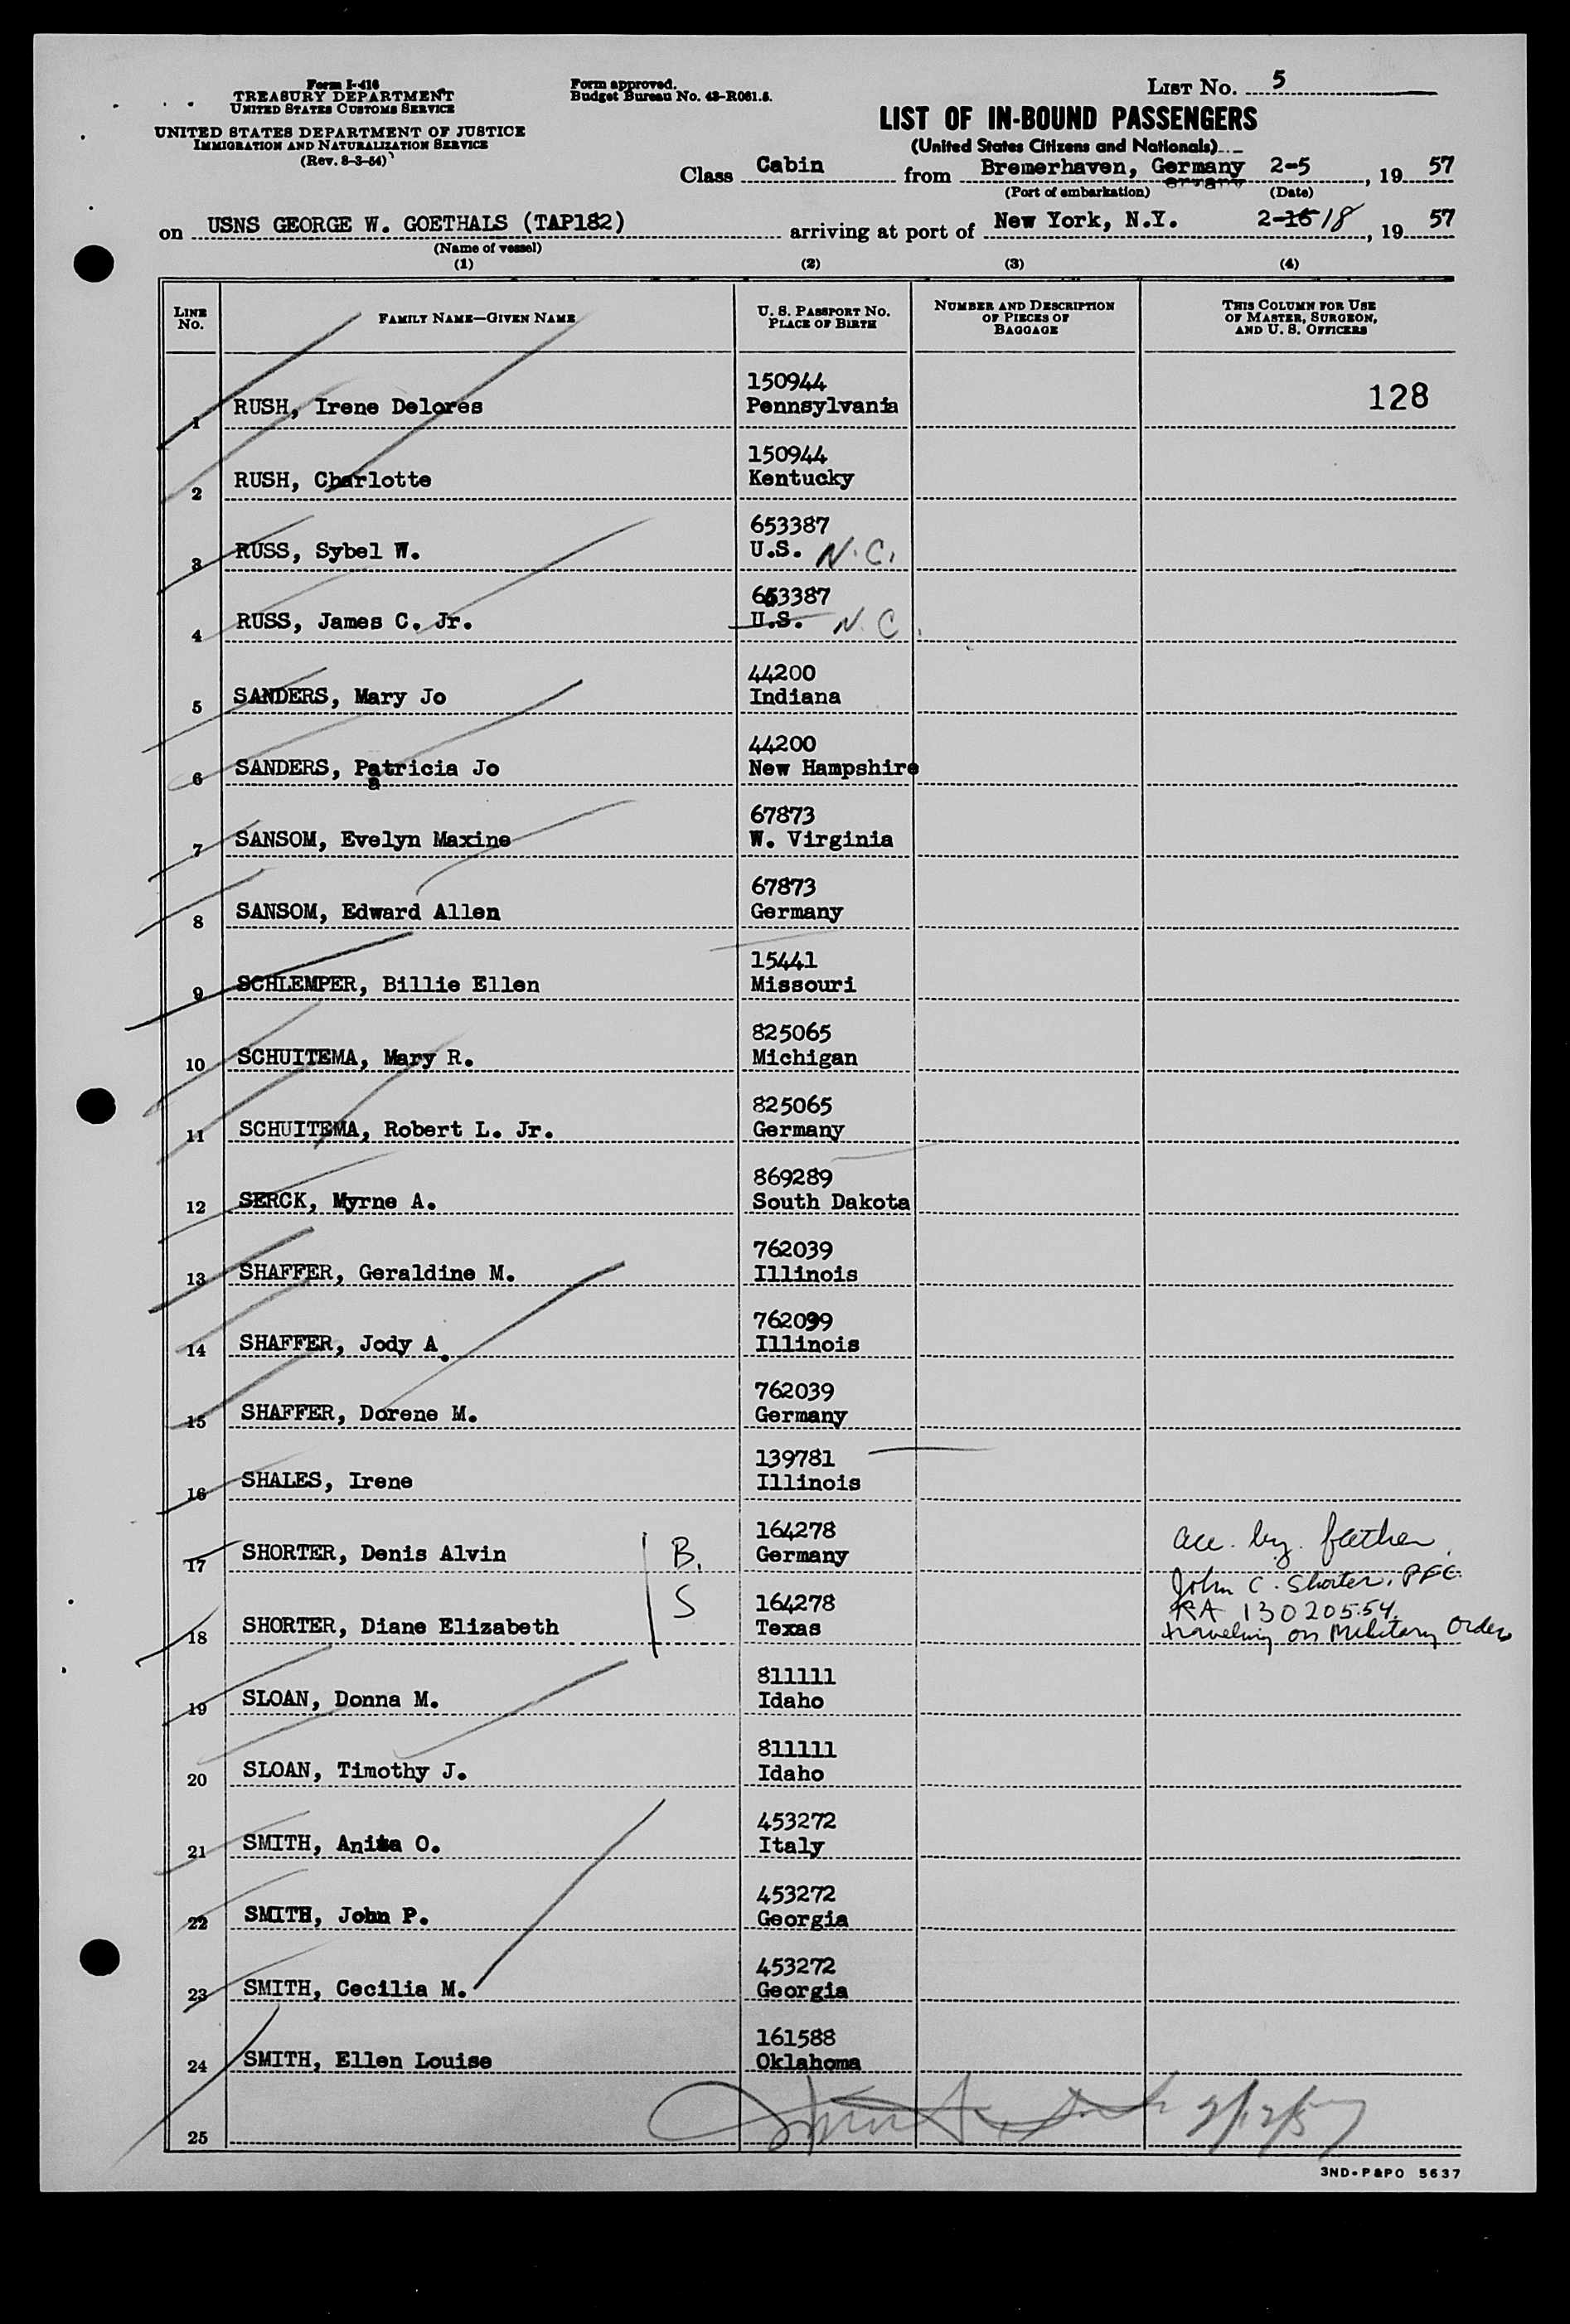 Form I-416
TREASURY DEPARTMENT
UNITED STATES CUSTOMS SERVICE
UNITED STATES DEPARTMENT OF JUSTICE
IMMIGRATION AND NATURALIZATION SERVICE
(Rev. 8-3-54)
Form approved.
Budget Bureau No. 43-R061.5.
LIST No. 5
LIST OF IN-BOUND PASSENGERS
(United States Citizens and Nationals)
Class Cabin from Bremerhaven, Germany 2-5, 1957
(Port of embarkation) (Date)
on USNS GEORGE W. GOETHALS (TAP182) arriving at port of New York, N.Y. 2-16 18, 1957
(Name of vessel)
(1) (2) (3) (4)
LINE No. FAMILY NAME—GIVEN NAME U. S. PASSPORT No. PLACE OF BIRTH NUMBER AND DESCRIPTION OF PIECES OF BAGGAGE THIS COLUMN FOR USE OF MASTER, SURGEON, AND U. S. OFFICERS
128
150944
1 RUSH, Irene Delores Pennsylvania
150944
2 RUSH, Charlotte Kentucky
653387
3 RUSS, Sybel W. U.S. N.C.
653387
4 RUSS, James C. Jr. U.S. N.C.
44200
5 SANDERS, Mary Jo Indiana
44200
6 SANDERS, Patricia Jo New Hampshire
a
67873
7 SANSOM, Evelyn Maxine W. Virginia
67873
8 SANSOM, Edward Allen Germany
15441
9 SCHLEMPER, Billie Ellen Missouri
825065
10 SCHUITEMA, Mary R. Michigan
825065
11 SCHUITEMA, Robert L. Jr. Germany
869289
12 SERCK, Myrne A. South Dakota
762039
13 SHAFFER, Geraldine M. Illinois
762039
14 SHAFFER, Jody A. Illinois
762039
15 SHAFFER, Dorene M. Germany
139781
16 SHALES, Irene Illinois
164278
17 SHORTER, Denis Alvin B. Germany acc. by father
John C. Shorter, PFC.
S 164278 RA 13020554.
18 SHORTER, Diane Elizabeth Texas traveling on Military Orders
811111
19 SLOAN, Donna M. Idaho
811111
20 SLOAN, Timothy J. Idaho
453272
21 SMITH, Anita O. Italy
453272
22 SMITH, John P. Georgia
453272
23 SMITH, Cecilia M. Georgia
161588
24 SMITH, Ellen Louise Oklahoma
25
3ND-P&PO 5637